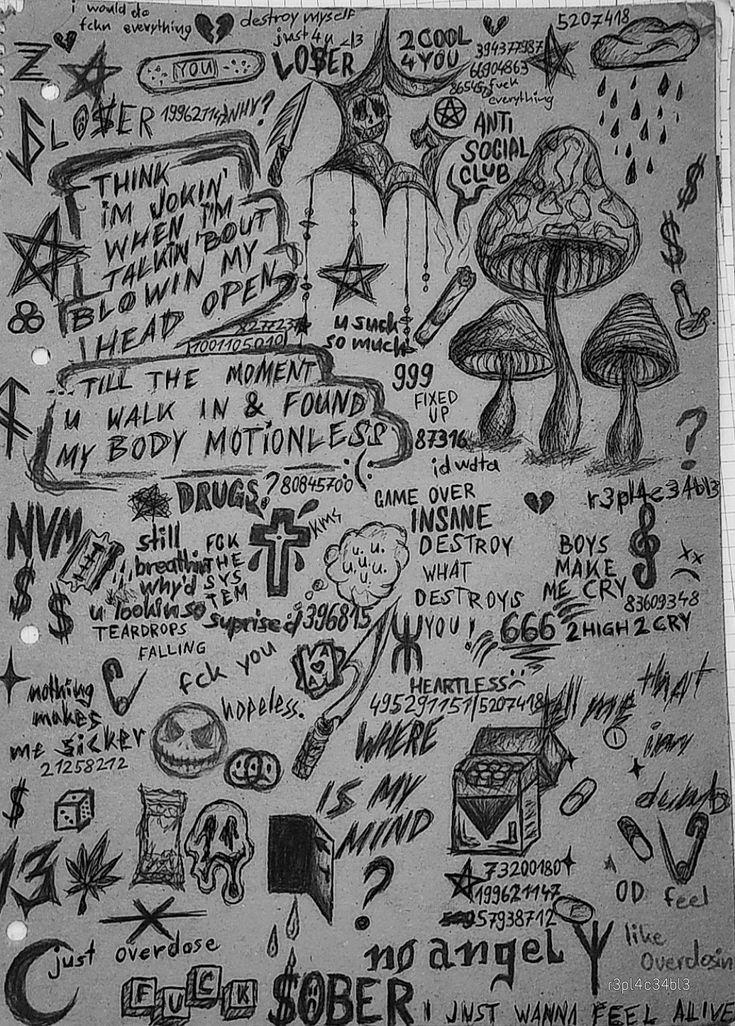 i would do
fckn everything
destroy myself
just 4 u <13
LO$ER
2 COOL
4 YOU
5207418
394377987
66904863
fuck
everything
YOU
LO$ER
199621147
WHY?
ANTI
SOCIAL
CLUB
THINK
iM JOKIN'
WHEN I'M
TALKIN 'BOUT
BLOWIN MY
HEAD OPEN
1001105010
u suck
so much
...TILL THE MOMENT
u WALK IN & FOUND
MY BODY MOTiONLESS
:(
999
FIXED
UP
87316
idwdta
?
DRUGS?
80845700
GAME OVER
INSANE
DESTROY
WHAT
DESTROYS
YOU!
r3pl4c34bl3
NVM
still
breathin
why'd
u lookin so
suprised
FCK
THE
SYS
TEM
KMS
u.u.
u.u.
u.u.
396815
BOYS
MAKE
ME CRY
83609348
666
2 HIGH 2 CRY
TEARDROPS
FALLING
fck you
A
HEARTLESS
495291151
5207418
nothing
makes
me sicker
21258212
hopeless.
WHERE
IS MY
MIND
?
tell me
that
im
dumb
$
13
73200180
199621147
57938712
OD
feel
like
Overdosin
just overdose
no angel
FUCK
$OBER
I JUST WANNA FEEL ALIVE
r3pl4c34bl3